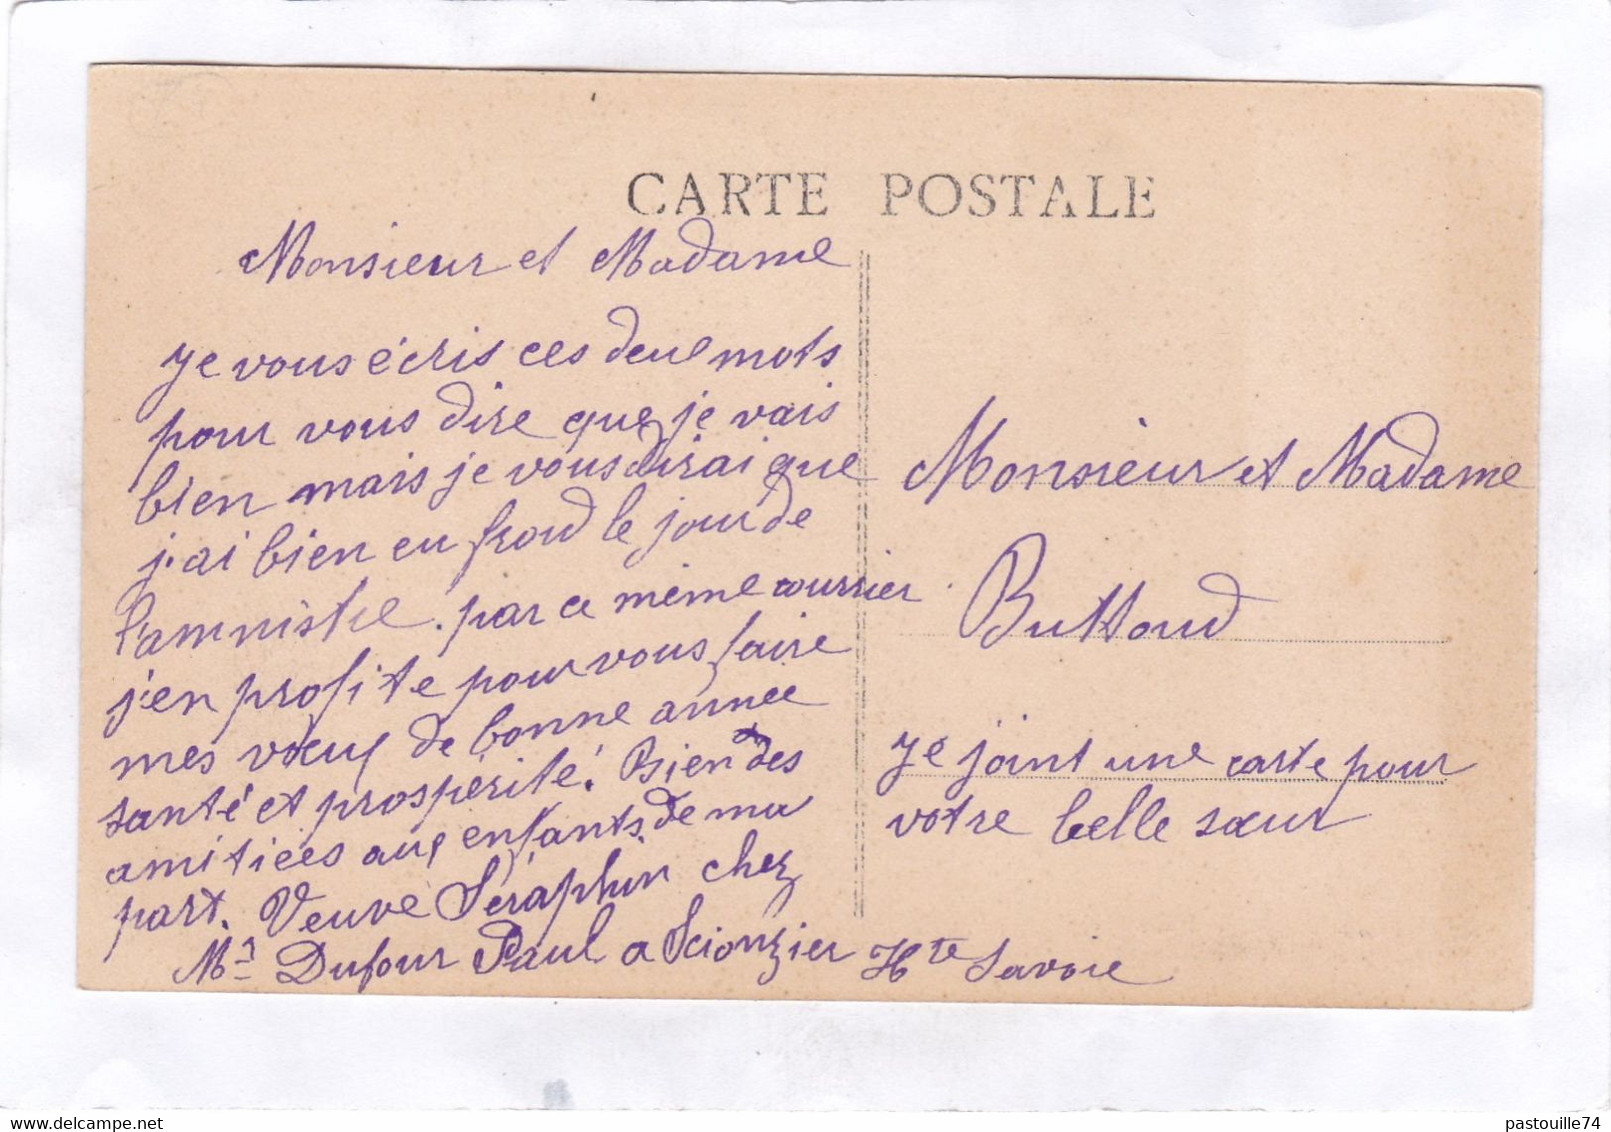 CARTE POSTALE
Monsieur et Madame
Je vous écris ces deux mots
pour vous dire que je vais
bien mais je vous dirai que
j'ai bien eu froid le jour de
l'amnistie. par ce même courrier
j'en profite pour vous faire
mes vœux de bonne année
santé et prospérité. Bien des
amitiées aux enfants de ma
part. Veuve Séraphin chez
Mr Dufour Paul a Scionzier Hte Savoie
Monsieur et Madame
Buttoud
Je joint une carte pour
votre belle sœur
pastouille74